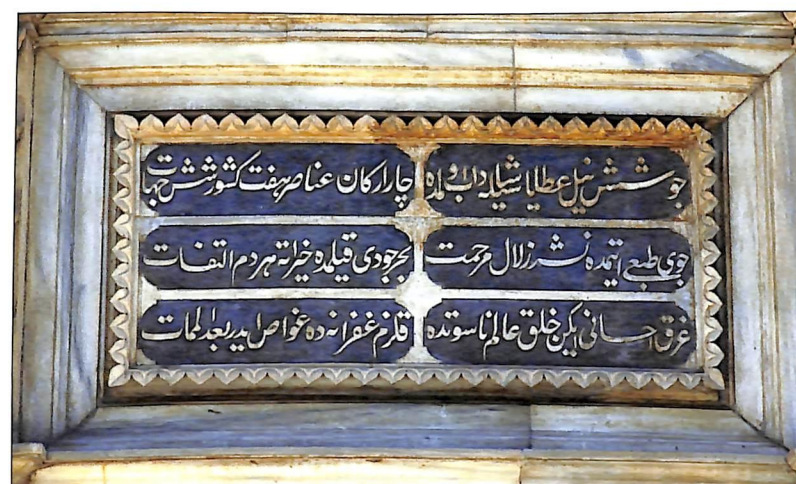 جوشش نیل عطایاسیله شاداب اولمده چار ارکان عناصر هفت کشور شش جهات
جوی طبعی ایتمده نشر زلال مرحمت بحر جودی قیلمده خیراته هر دم التفات
غرق احسانی ایکن خلق عالم ناسوتده قلزم غفرانه ده غواص ایدر بعد الممات